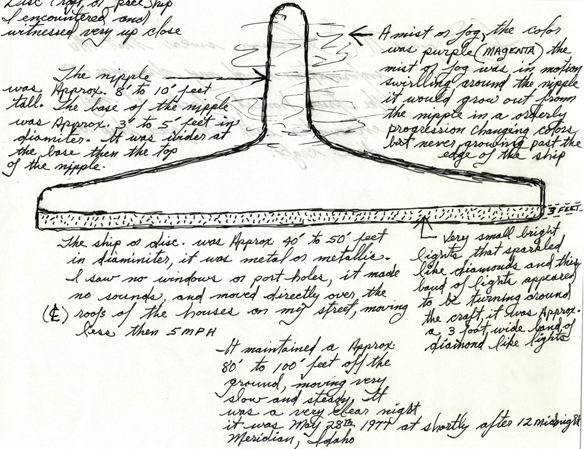 Disc (Ray or Space) ship
I encountered, and
witnessed very up close
The nipple
was Approx. 8' to 10' feet
tall. the base of the nipple
was Approx. 3' to 5' feet in
diamiter. It was wider at
the base then the top
of the nipple.
A mist or fog, the color
was purple (MAGENTA) the
mist or fog was in motion
swirlling around the nipple
it would grow out from
the nipple in a orderly
progression changing colors,
but never growing past the
edge of the ship
3 FEET
The ship or disc. was Approx 40' to 50' feet
in diaminiter, it was metal or metallic.
I saw no windows or port holes, it made
no sounds, and moved directly over the
roofs of the houses on my street, moving
less then 5 MPH
Very small bright
lights that sparkled
like diamonds and this
band of lights appeared
to be turning around
the craft, it was Approx.
a 3 foot wide band of
diamond like lights
It maintained a Approx
80' to 100' feet off the
ground, moving very
slow and steady. It
was a very clear night
it was May 28th 1977 at shortly after 12 midnight
Meridian, Idaho